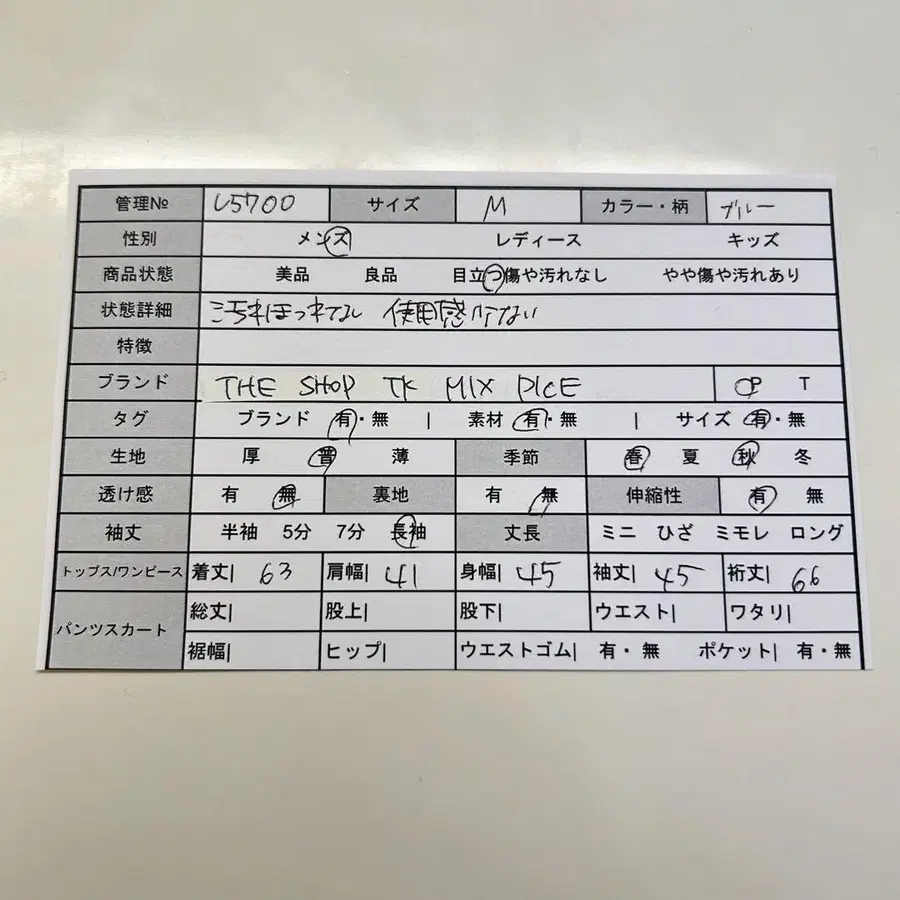 管理№ し5700 サイズ M カラー・柄 ブルー
性別 メンズ レディース キッズ
商品状態 美品 良品 目立つ傷や汚れなし やや傷や汚れあり
状態詳細 汚れほつれてなし 使用感少ない
特徴
ブランド THE SHOP TK MIX PICE OP T
タグ ブランド 有・無 | 素材 有・無 | サイズ 有・無
生地 厚 普 薄 季節 春 夏 秋 冬
透け感 有 無 裏地 有 無 伸縮性 有 無
袖丈 半袖 5分 7分 長袖 丈長 ミニ ひざ ミモレ ロング
トップス/ワンピース 着丈| 63 肩幅| 41 身幅| 45 袖丈| 45 裄丈| 66
パンツスカート 総丈| 股上| 股下| ウエスト| ワタリ|
裾幅| ヒップ| ウエストゴム| 有・無 ポケット| 有・無